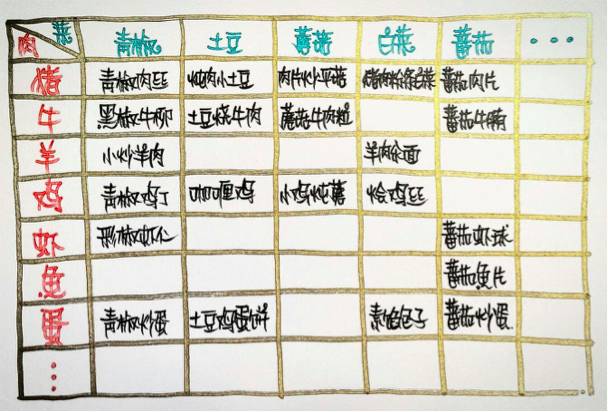 肉 菜 青椒 土豆 蘑菇 白菜 蕃茄 ···
猪 青椒肉丝 炖肉小土豆 肉片炒平菇 猪肉粉条白菜 蕃茄肉片
牛 黑椒牛柳 土豆烧牛肉 蘑菇牛肉粒 蕃茄牛腩
羊 小炒羊肉 羊肉烩面
鸡 青椒鸡丁 咖喱鸡 小鸡炖蘑 烩鸡丝
虾 彩椒虾仁 蕃茄虾球
魚 蕃茄魚片
蛋 青椒炒蛋 土豆鸡蛋饼 素馅包子 蕃茄炒蛋
⋮